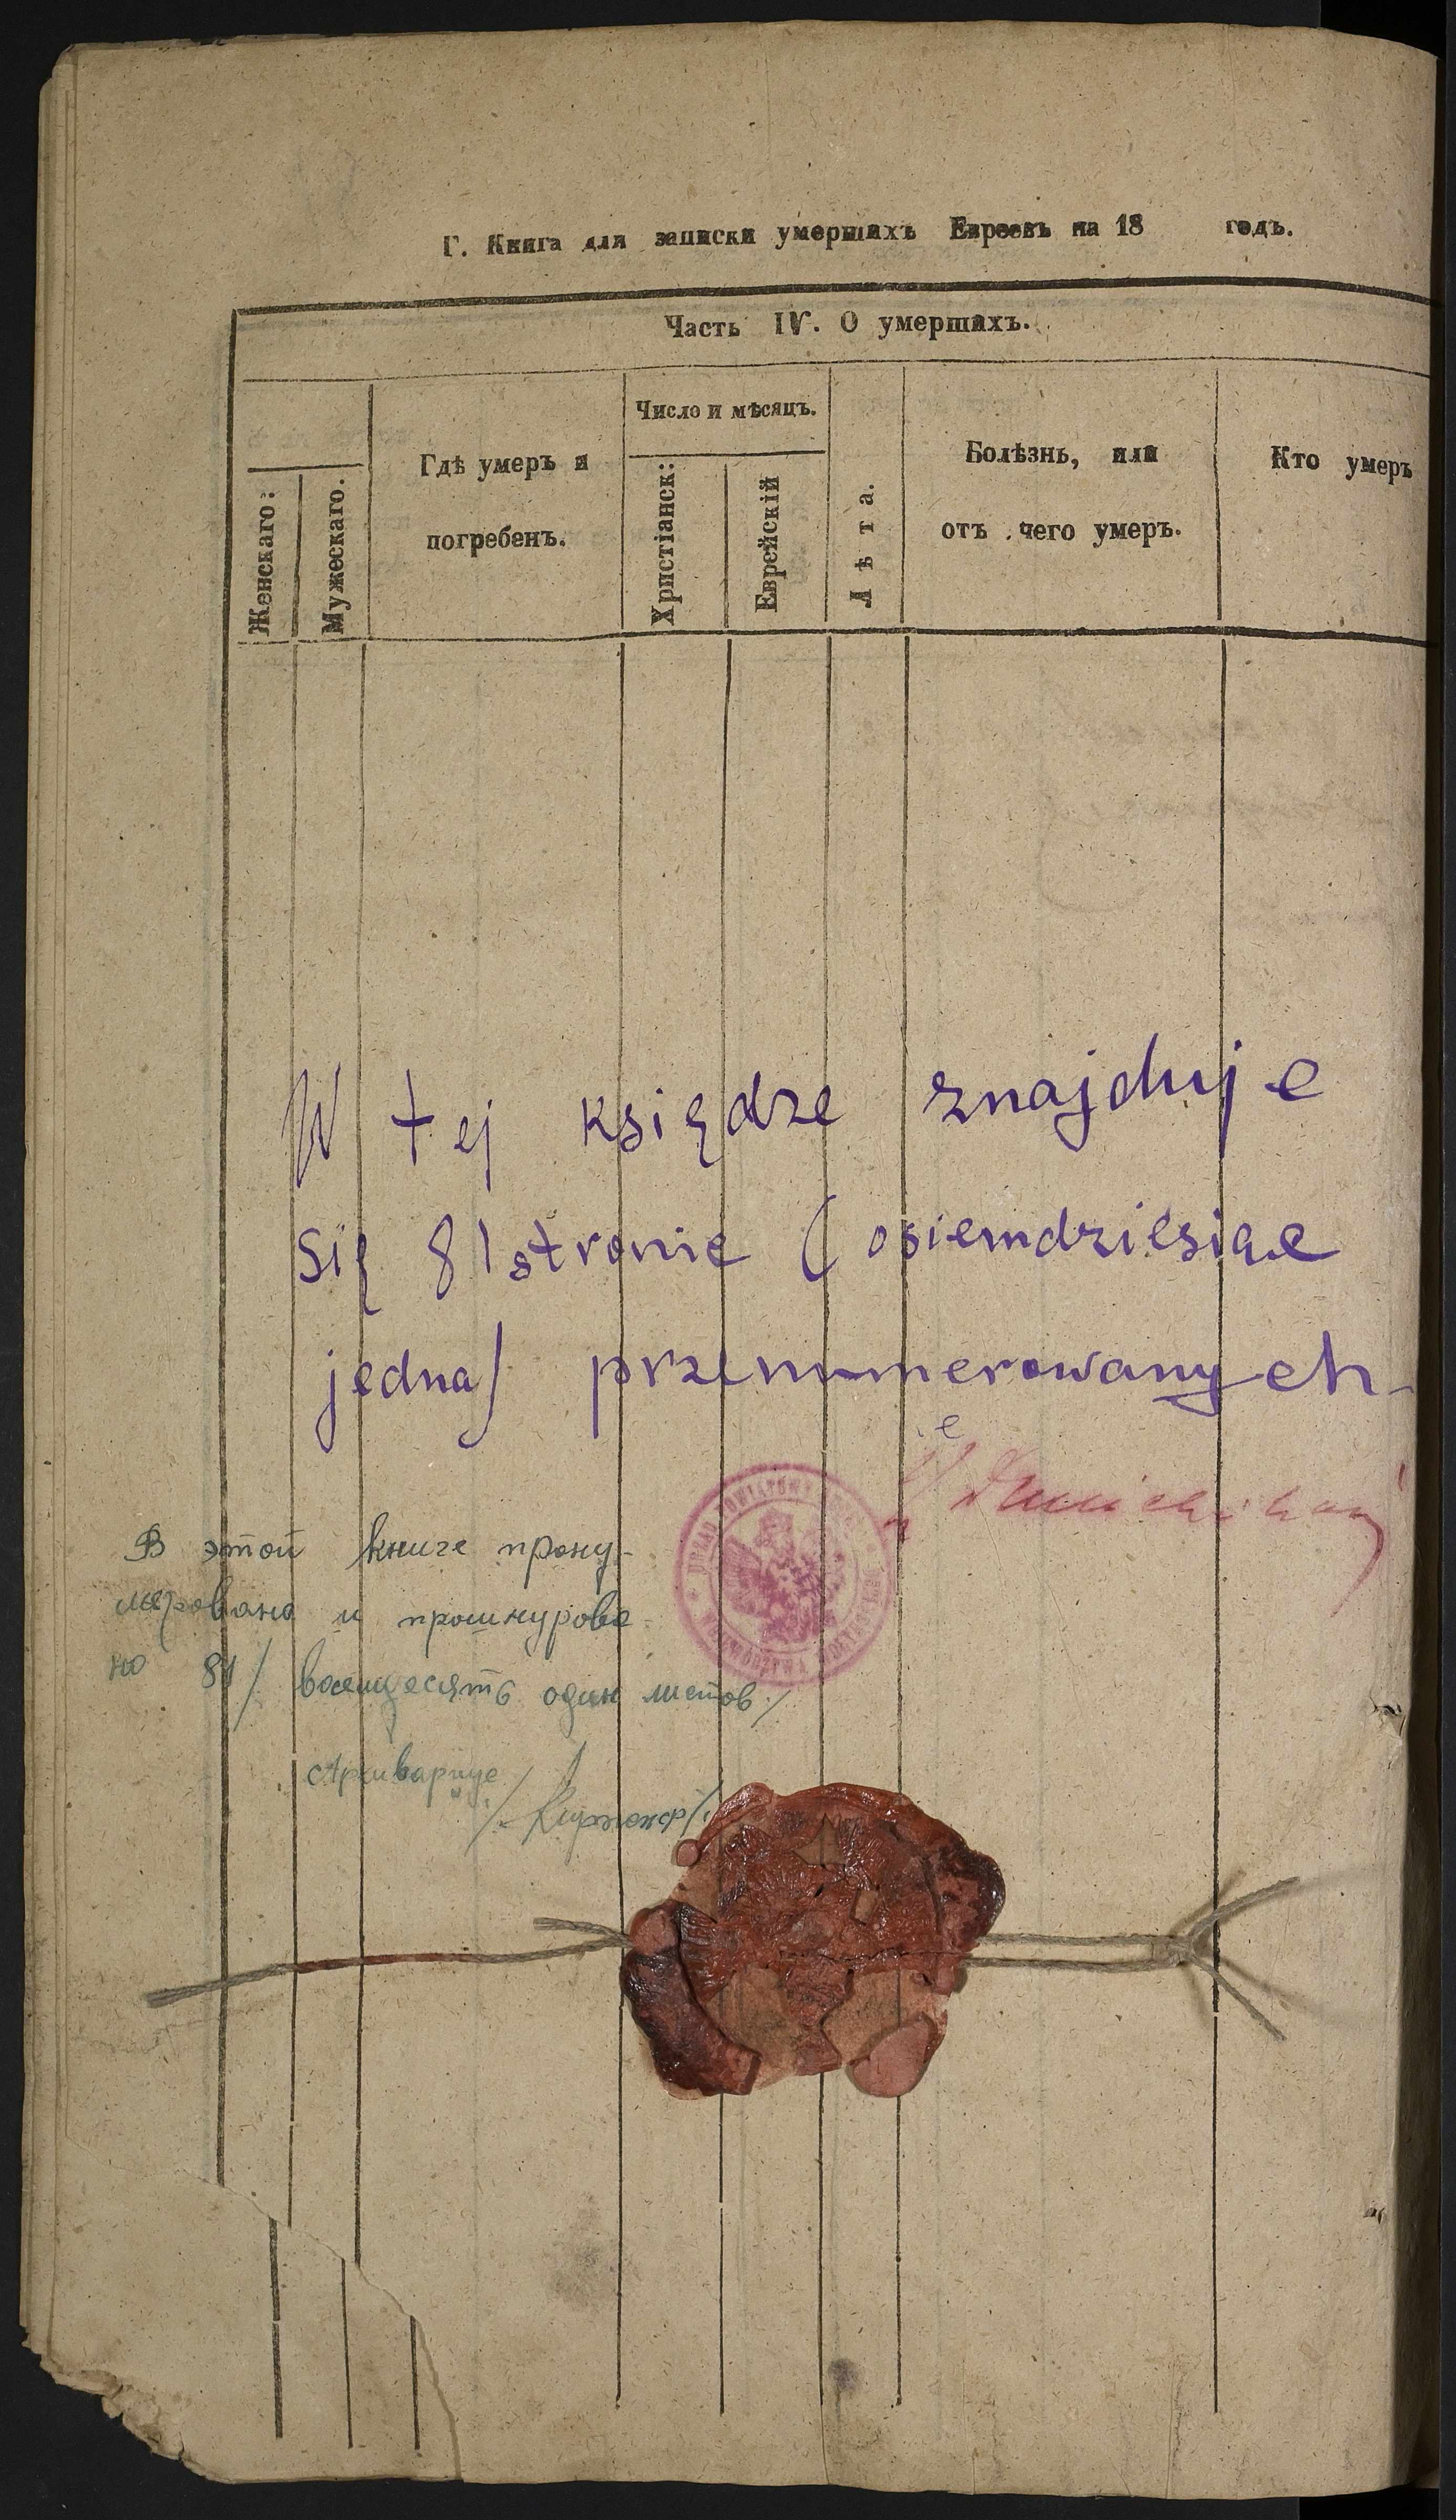 Г. Книга для записки умершихъ Евреевъ на 18 годъ.
Часть IV. О умершихъ.
Женскаго:
Мужескаго.
Гдѣ умеръ и
погребенъ.
Число и мѣсяцъ.
Христіанск:
Еврейскій
Лѣта.
Болѣзнь, или
отъ чего умеръ.
Кто умеръ
W tej księdze znajduje
się 81 stronie (osiemdziesiąe
jedna) przenumerowanych
В этой книге прону-
мерована и прошнурова-
но 81/ восемдесять один листов/
Архивариус